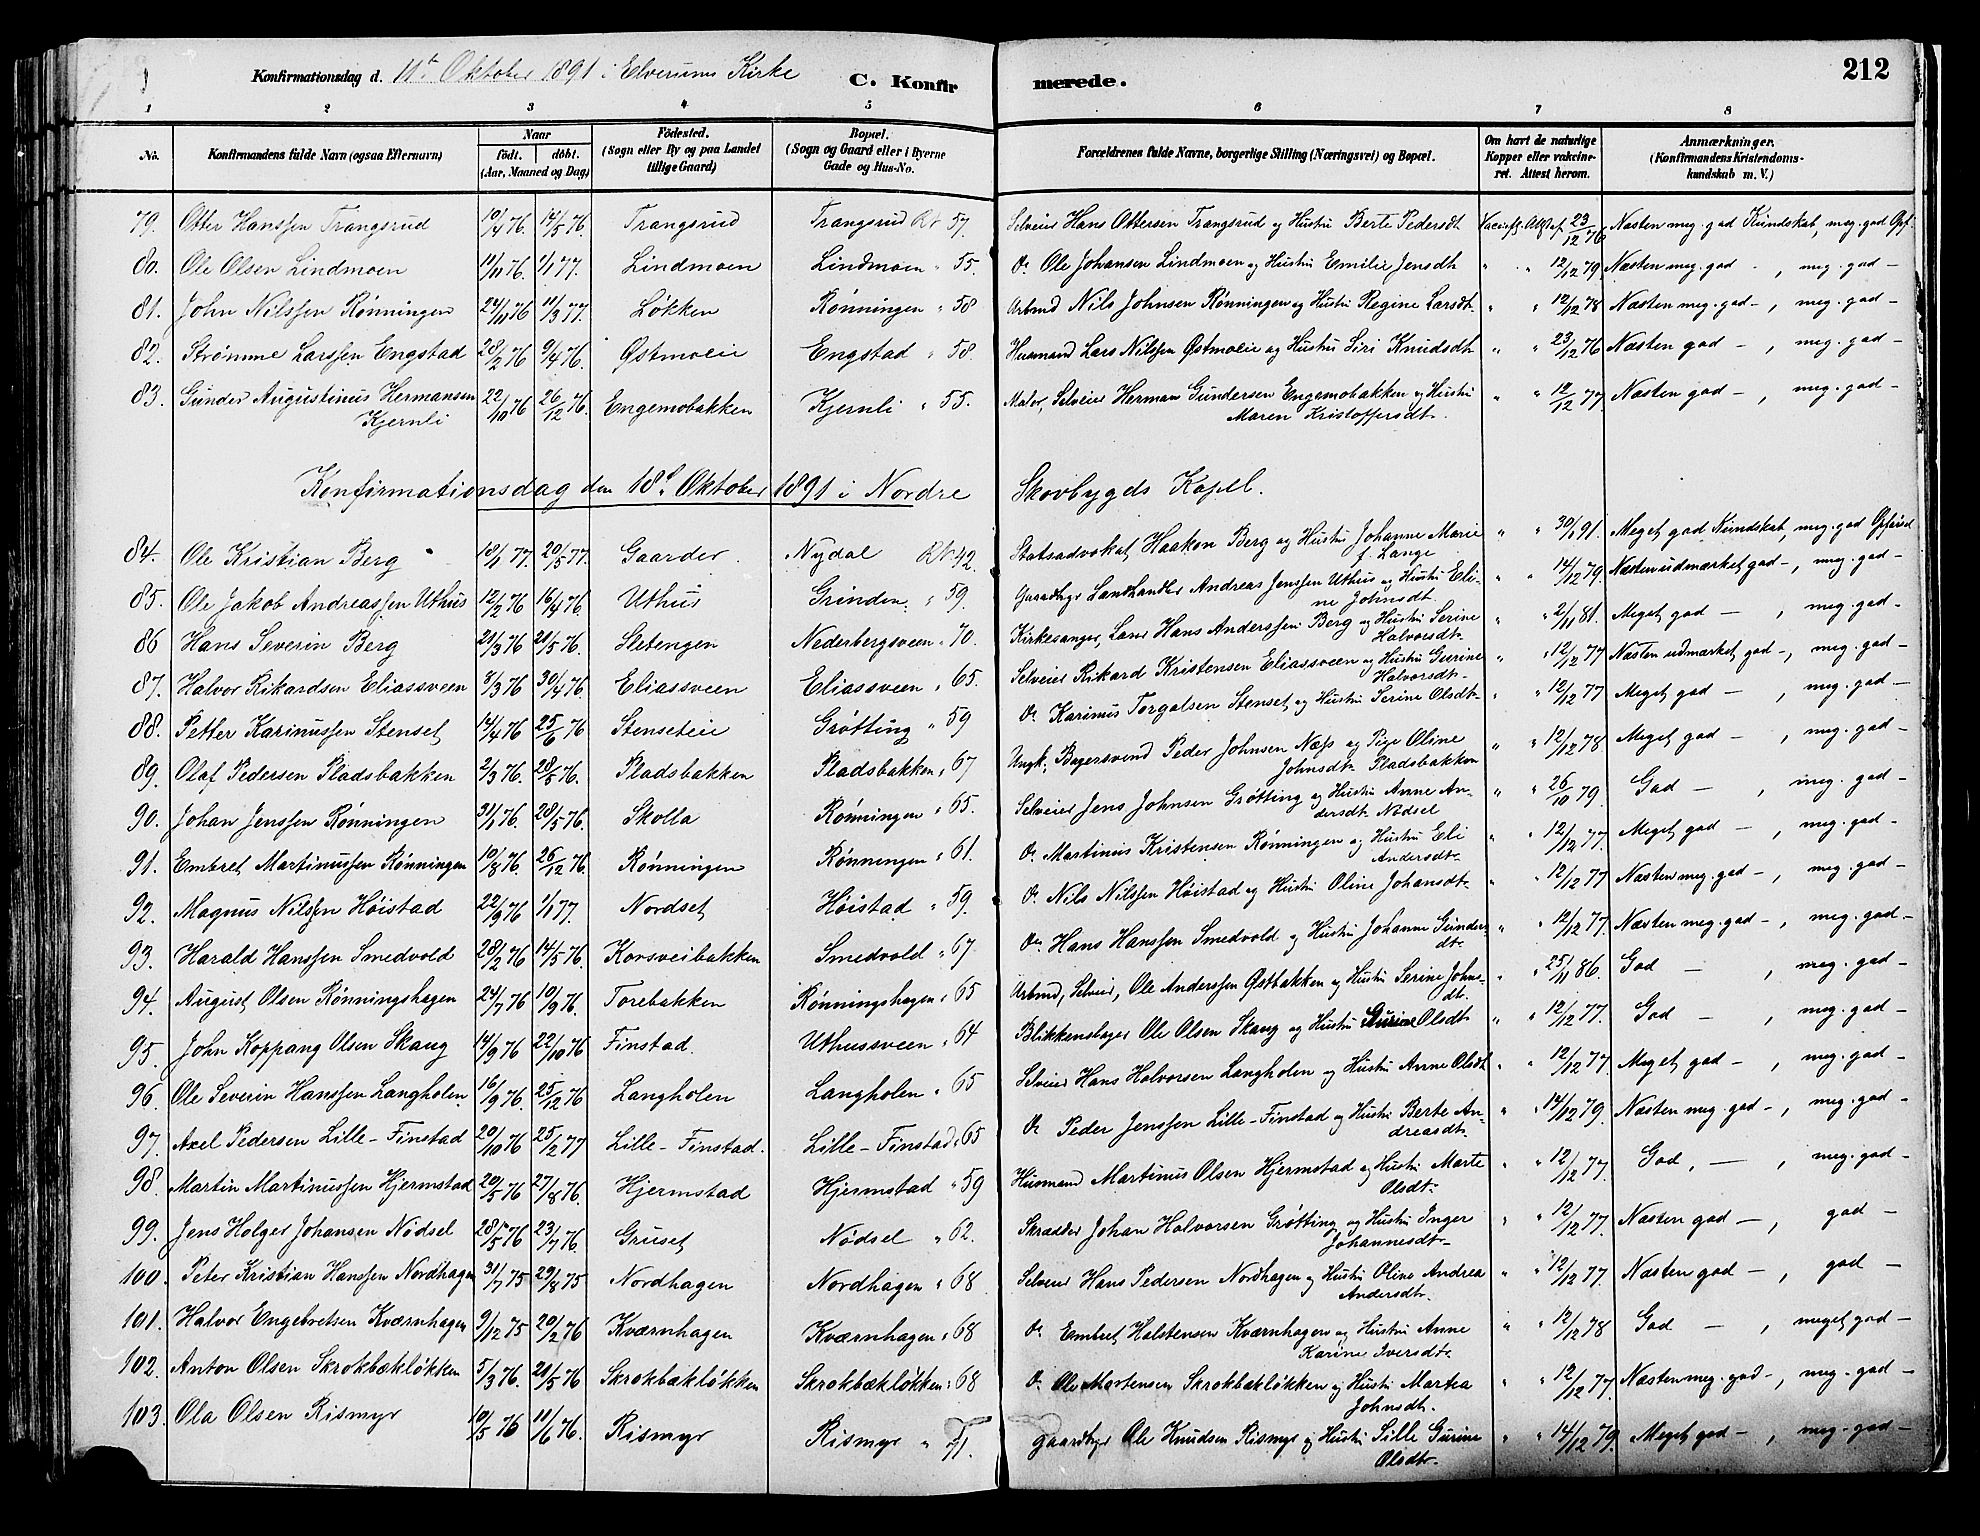 212
Konfirmationsdag d. 11te Oktober 1891 i Elverums Kirke C. Konfirmerede.
1 2 3 4 5 6 7 8
No. Konfirmandens fulde Navn (ogsaa Efternavn) Naar født. døbt. (Aar, Maaned og Dag) Fødested. (Sogn eller By og paa Landet tillige Gaard) Bopæl. (Sogn og Gaard eller i Byerne Gade og Hus-No. Forældrenes fulde Navne, borgerlige Stilling (Næringsvei) og Bopæl. Om havt de naturlige Kopper eller vakcineret. Attest herom. Anmærkninger. (Konfirmandens Kristendomskundskab m. V.)
79. Otter Hanssen Trangsrud 10/4 76. 14/5 76. Trangsrud Trangsrud Rt 57. Selveier Hans Ottersen Trangsrud og Hustru Berte Pedersdt 23/12 76 Næsten meg. god Kundskab, meg. god Opf.
80. Ole Olsen Lindmoen 11/11 76. 1/1 77. Lindmoen Lindmoen " 55. Do Ole Johansen Lindmoen og Hustru Emilie Jensdt " " 12/12 79 Næsten meg. god - , meg. god -
81. John Nilssen Rønningen 24/11 76 11/3 77. Løkken Rønningen " 58 Arbmd Nils Johnsen Rønningen og Hustru Regine Larsdt. " " 12/12 78 Næsten meg. god - , meg. god -
82. Strømme Larssen Engstad 28/2 76 9/4 76. Østmoeie Engstad " 58. Husmand Lars Nilssen Østmoeie og Hustru Siri Knudsdt " " 23/12 76 Næsten god - , meg. god -
83. Gunder Augustinus Hermansen Kjernli 22/10 76 26/12 76. Engemobakken Kjernli " 55. Maler, Selveier Herman Gundersen Engemobakken og Hustru Maren Kristoffersdt. " " 12/12 77. Næsten god - , meg. god -
Konfirmationsdag den 18de Oktober 1891 i Nordre Skovbygds Kapel.
84. Ole Kristian Berg 10/1 77. 20/5 77. Gaarder Nydal Rt 42. Statsadvokat Haakon Berg og Hustru Johanne Marie f. Lange " " 30/1 91. Meget god Kundskab, meg. god Opførsel
85. Ole Jakob Andreassen Uthus 12/2 76 16/4 76. Uthus Grinden. " 59. Gaardbgr Landhandler Andreas Jenssen Uthus og Hustru Eline Johnsdt. " " 14/12 79. Næsten udmærket god -, meg. god -
86 Hans Severin Berg 21/3 76 21/5 76. Sletengen Nederbergsveen " 70. Kirkesanger, Lærer Hans Anderssen Berg og Hustru Serine Halvorsdt. " " 2/11 81. Meget god - , meg. god -
87. Halvor Rikardsen Eliassveen 3/3 76 30/4 76. Eliassveen Eliassveen " 65. Selveier Rikard Kristensen Eliassveen og Hustru Gurine Halvorsdt. " " 12/12 77 Næsten udmærket god -, meg. god -
88. Petter Karinussen Stenset 14/4 76 25/6 76 Stenseteie Grøtting " 59 Do Karinus Torgalsen Stenset og Hustru Serine Olsdt. " " 12/12 77 Meget god - , meg. god -
89. Olaf Pedersen Pladsbakken 2/3 76. 28/5 76. Pladsbakken Pladsbakken " 67 Ungk. Bagersvend Peder Johnsen Næss og Pige Oline Johnsdt. Pladsbakken " " 12/12 78 Meget god - , meg. god -
90. Johan Jenssen Rønningen 31/1 76. 28/5 76. Skolla Rønningen " 65. Selveier Jens Johnsen Grøtting og Hustru Anne Andersdt. Nødsel " " 26/10 79. God - , meg. god -
91. Embret Martinussen Rønningen 10/8 76. 26/12 76. Rønningen Rønningen " 61. Do Martinus Kristensen Rønningen og Hustru Eli Andersdt. " " 12/12 77. Meget god - , meg. god -
92. Magnus Nilssen Høistad 22/9 76 1/1 77. Nordset Høistad " 59. Do Nils Nilssen Høistad og Hustru Oline Johansdt. " " 12/12 77 Næsten meg. god - , meg. god -
93. Harald Hanssen Smedvold 28/2 76 14/5 76. Korsveibakken Smedvold " 67. Do Hans Hanssen Smedvold og Hustru Johanne Gundersdt. " " 12/12 77. Næsten meg. god -, meg. god -
94. August Olsen Rønningshagen 24/7 76 10/9 76. Torebakken Rønningshagen " 65 Arbmd, Selveier, Ole Anderssen Østbakken og Hustru Serine Johnsdt. " " 25/11 86. God - , meg. god -
95. John Koppang Olsen Skaug 14/9 76 22/10 76 Finstad. Uthussveen " 64 Blikkenslager Ole Olsen Skaug og Hustru Gurine Olsdt. " " 12/12 77. God - , meg. god -
96. Ole Severin Hanssen Langholen. 16/9 76. 25/12 76 Langholen Langholen " 65 Selveier Hans Halvorsen Langholen og Hustru Anne Olsdt " " 12/12 77 Meget god - , meg. god -
97. Axel Pedersen Lille-Finstad 20/10 76 25/2 77 Lille-Finstad. Lille-Finstad " 65 Do Peder Jenssen Lille-Finstad og Hustru Berte Andreasdt. " " 14/12 79. Næsten meg. god -, meg. god -
98. Martin Martinussen Hjermstad 20/5 76 27/8 76. Hjermstad Hjermstad " 59 Husmand Martinus Olsen Hjermstad og Hustru Marte Olsdt. " " 12/12 77. God, - , meg. god -
99. Jens Holger Johansen Nødsel 28/5 76 23/7 76. Gruset Nødsel " 62. Skrædder Johan Halvorsen Grøtting og Hustru Inger Johannesdt. " " 12/12 77. Næsten god - , god -
100. Peter Kristian Hanssen Nordhagen 31/7 75 29/8 75 Nordhagen Nordhagen " 68 Selveier Hans Pedersen Nordhagen og Hustru Oline Andrea Andersdt. " " 12/12 77. Næsten god - , god -
101. Halvor Engebretsen Kværnhagen 9/12 75 20/2 76 Kværnhagen Kværnhagen " 68 Do Embret Halstensen Kværnhagen og Hustru Anne Karine Iversdt. " " 12/12 78 God - , meget god -
102. Anton Olsen Skrokbækløkken 5/3 76. 21/5 76 Skrokbækløkken Skrokbækløkken " 68 Do Ole Mortensen Skrokbækløkken og Hustru Martea Johnsdt. " " 12/12 77. Næsten meg. god -, meg. god -
103. Ola Olsen Rismyr 10/5 76 11/6 76. Rismyr Rismyr " 71. Gaardbgr Ole Knudsen Rismyr og Hustru Sille Gurine Olsdtr. " " 14/12 79. Meget god - , meg. god -